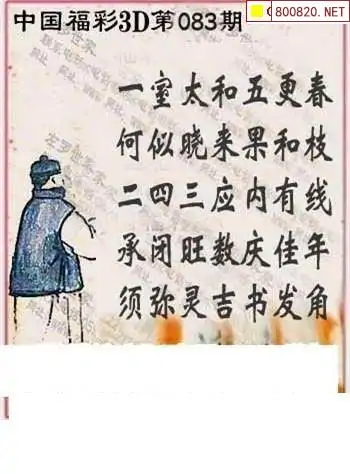 中国福彩3D第083期
C800820.NET
一室太和五更春
何似晓来果和枝
二四三应内有线
承闭旺数庆佳年
须弥灵吉书发角